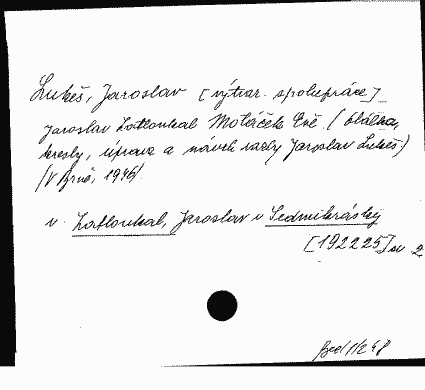 Lukeš, Jaroslav [výtvar. spolupráce]
Jaroslav Zatloukal Motáček Evě. (Obálka,
kresby, úprava a návrh vazby Jaroslav Lukeš.)
(V Brně, 1946).
v. Zatloukal, Jaroslav v Sedmikrásky
[192225] sv 2